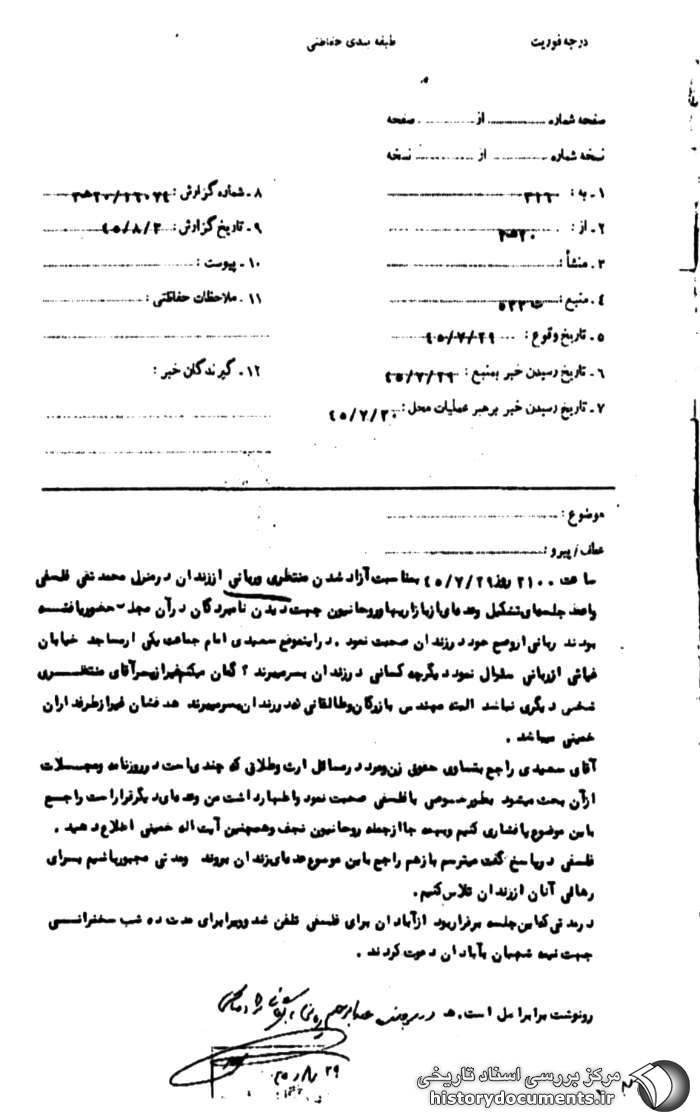 درجه فوریت
طبقه بندی حفاظتی
صفحه شماره از صفحه
نسخه شماره از نسخه
۱ - به : ۳۱۶
۲ - از : ۲۰ه۳
۳ - منشأ :
۴ - منبع : ۵۳۳
۵ - تاریخ وقوع : ۴۵/۷/۲۹
۶ - تاریخ رسیدن خبر بمنبع : ۴۵/۷/۲۹
۷ - تاریخ رسیدن خبر برهبر عملیات محل : ۴۵/۷/۳۰
۸ - شماره گزارش :
۹ - تاریخ گزارش : ۴۵/۸/۲
۱۰ - پیوست :
۱۱ - ملاحظات حفاظتی :
۱۲ - گیرندگان خبر :
موضوع :
عطف / پیرو :
ساعت ۲۱۰۰ روز ۴۵/۷/۲۹ بمناسبت آزاد شدن منتظری و ربانی از زندان در منزل محمد تقی فلسفی
واعظ جلسه‌ای تشکیل وعده‌ای از بازاریها و روحانیون جهت دیدن نامبردگان در آن مجلس حضور یافته
بودند ربانی از وضع خود در زندان صحبت نمود . در اینموقع سعیدی امام جماعت یکی از مساجد خیابان
غیاثی از ربانی سئوال نمود دیگر چه کسانی در زندان بسر میبرند ؟ گمان میکنم غیر از پسر آقای منتظری
شخص دیگری نباشد البته مهندس بازرگان و طالقانی که در زندان بسر میبرند هدفشان غیر از طرفداران
خمینی میباشد .
آقای سعیدی راجع بتساوی حقوق زن و مرد در مسائل ارث و طلاق که چندی است در روزنامه و مجلات
از آن بحث میشود بطور خصوصی با فلسفی صحبت نمود و اظهار داشت من وعده‌ای دیگر قرار است راجع
باین موضوع پافشاری کنیم و بهمه جا از جمله روحانیون نجف و همچنین آیت اله خمینی اطلاع دهید .
فلسفی در پاسخ گفت میترسم باز هم راجع باین موضوع عده‌ای زندان بروند ومدتی مجبور باشیم برای
رهائی آنان از زندان تلاش کنیم.
در مدتی که این جلسه برقرار بود از آبادان برای فلسفی تلفن شد و ویرا برای مدت ده شب سخنرانی
جهت نیمه شعبان بآبادان دعوت کردند .
رونوشت برابر اصل است. ه
۲۹
مرکز بررسی اسناد تاریخی
historydocuments.ir